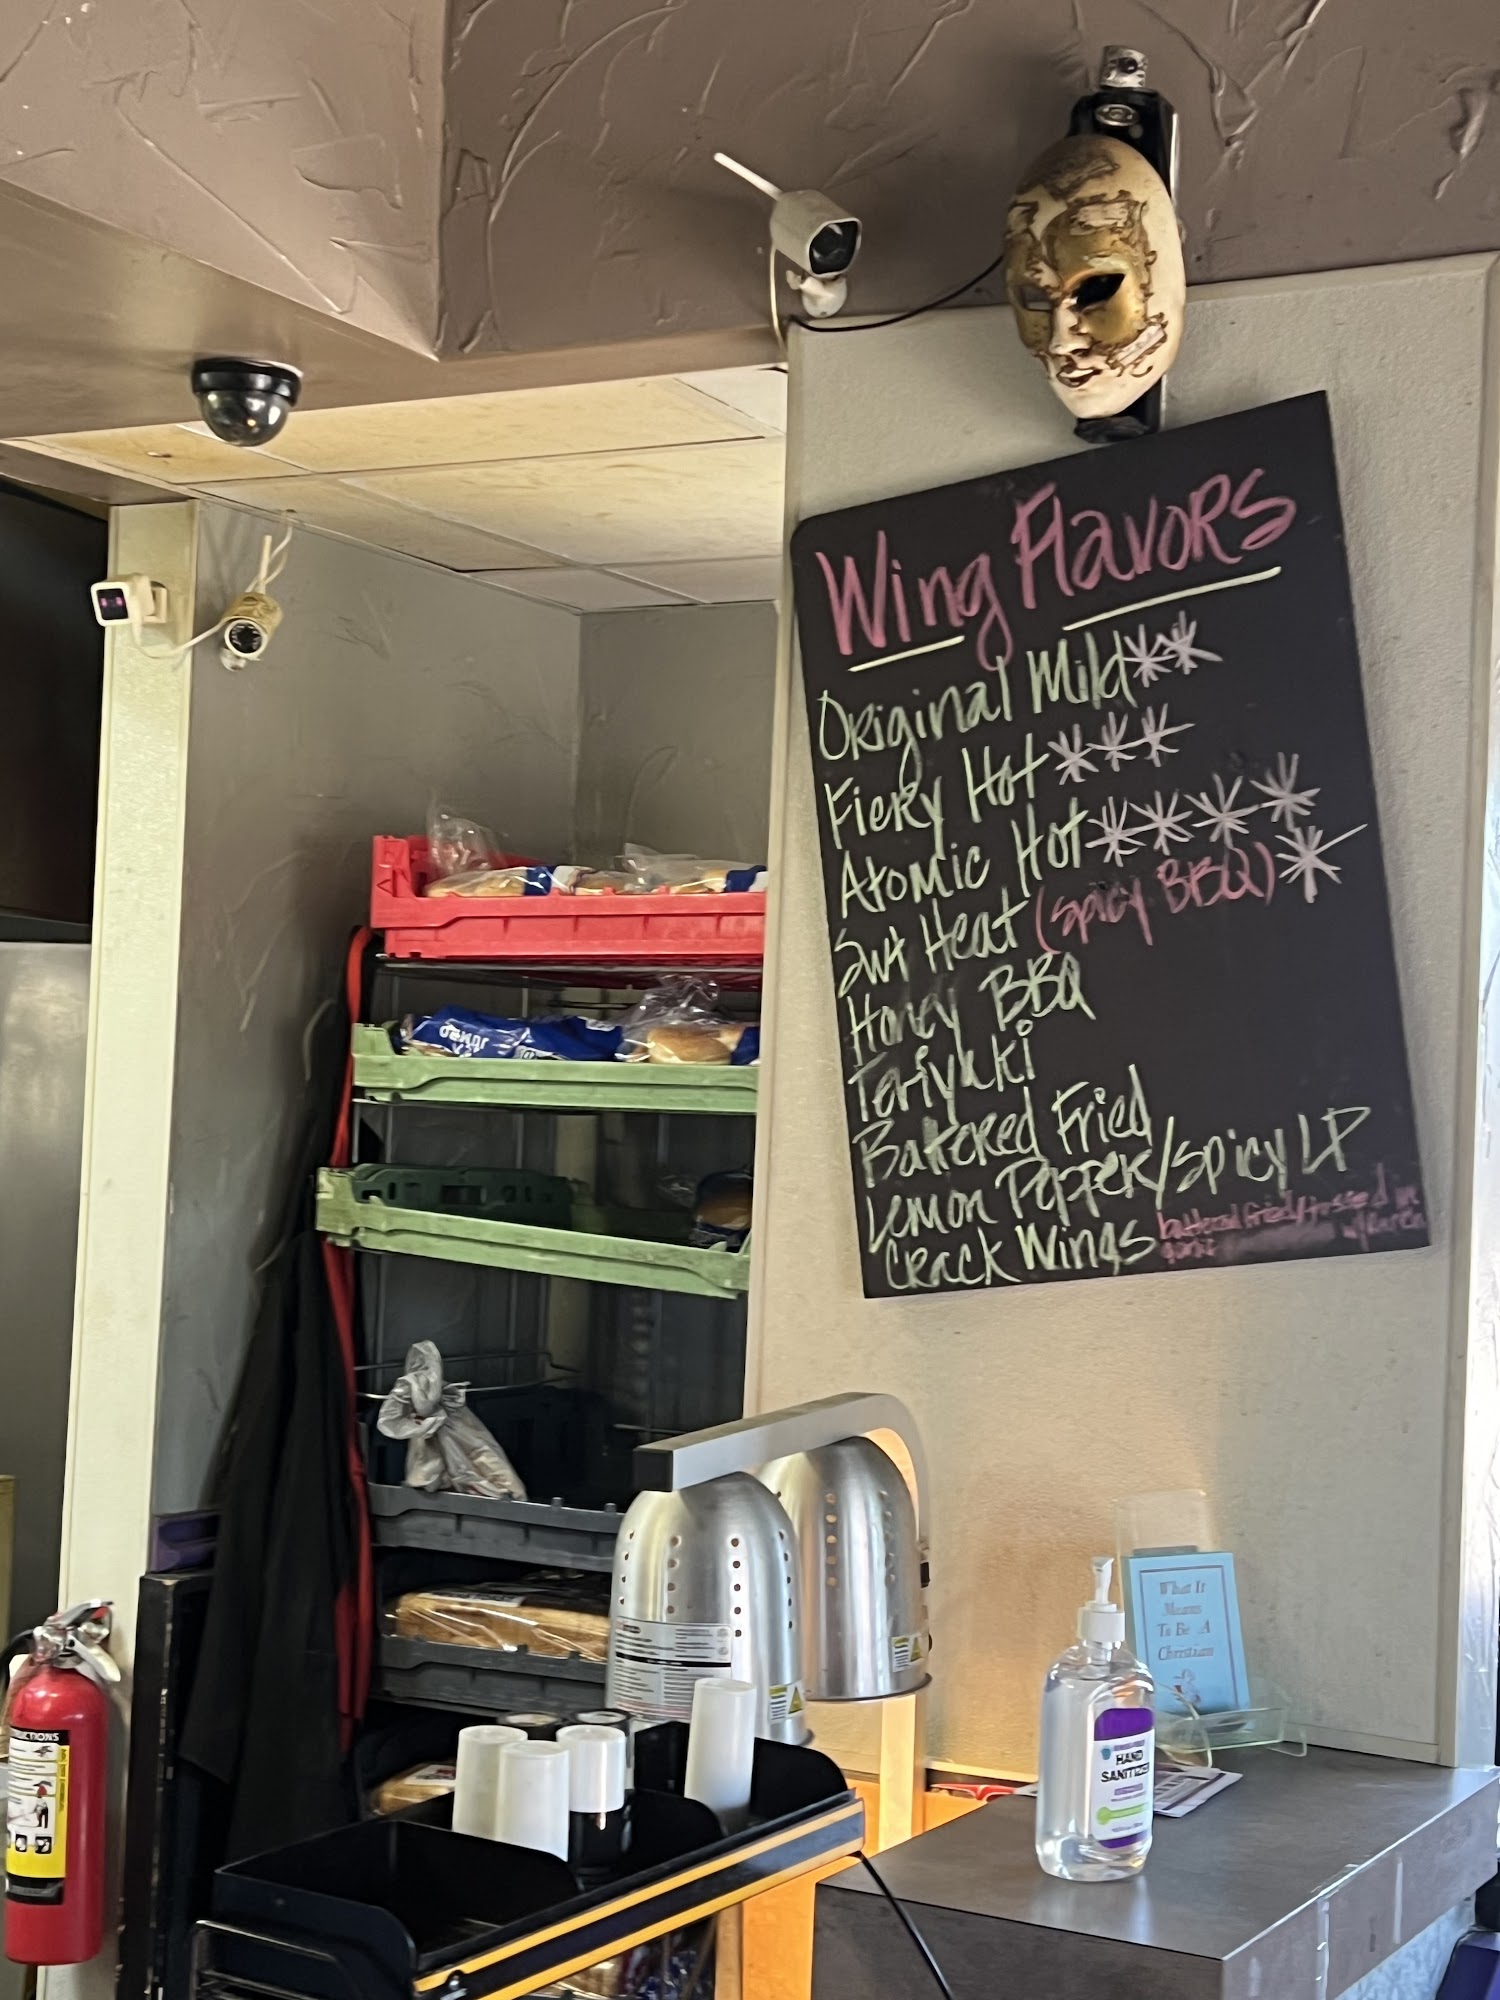 Wing Flavors
Original Mild**
Fiery Hot***
Atomic Hot****
Swt Heat (Spicy BBQ)*
Honey BBQ
Teriyaki
Battered Fried
Lemon Pepper/Spicy LP
Crack Wings battered fried/tossed in
garlic
What It
Means
To Be A
Christian
HAND
SANITIZER
JUMBO